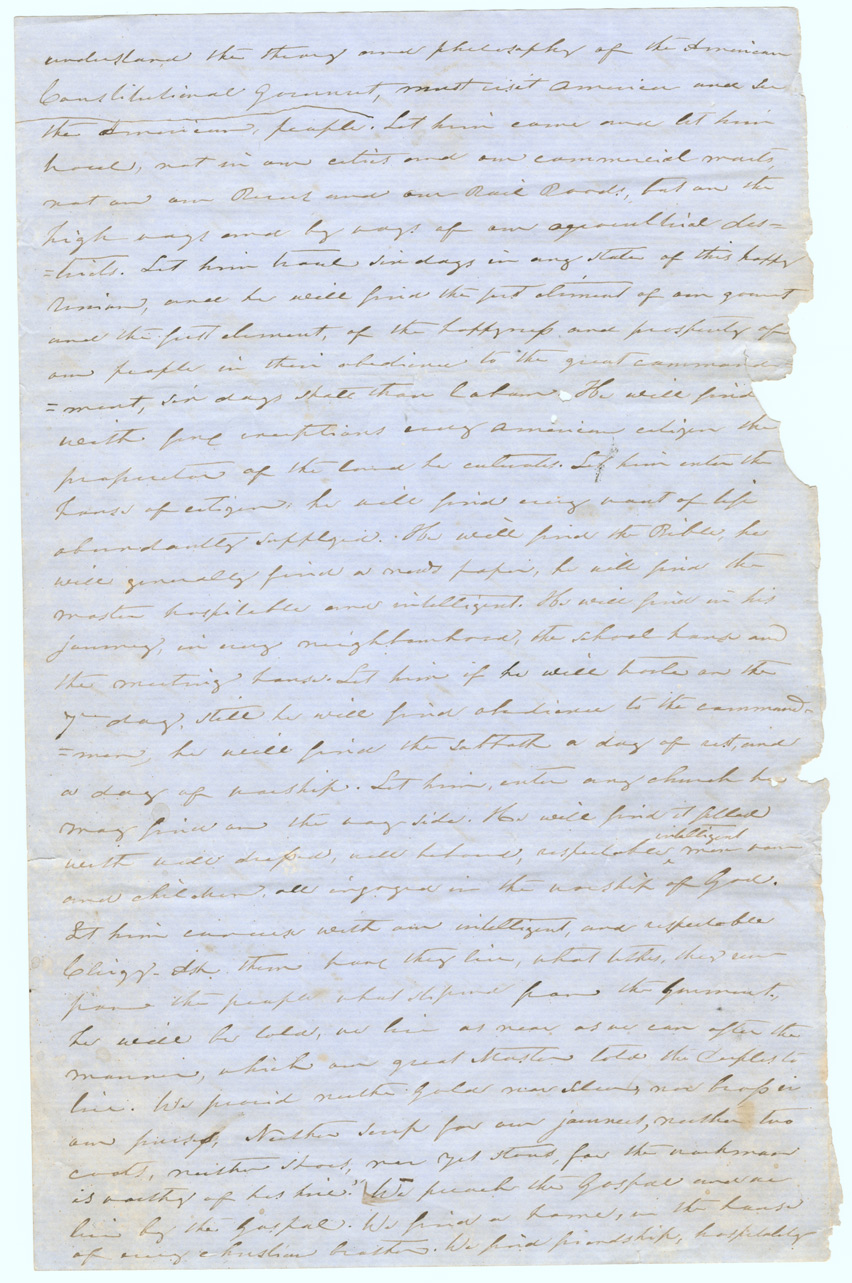 understand the theory and philosophy of the American
Constitutional Goverment, must visit America and see
the American, people. Let him come and let him
travel, not in our cities and our commercial marts,
not on our Rivers and our Rail Roads, but on the
high ways and by ways of our agricultural dis=
=tricts. Let him travel six days in any state of this happy
Union, and he will find the first element of our
and the first element, of the happyness and prosperity of
our people in their obedience to the great command
=ment, six days shalt thou labour. He will find
with few exceptions every American citizen the
proprietor of the land he cultivates. Let him enter the
house of citizen, he will find every want of life
abundantly supplyed. He will find the Bible, he
will generally find a news paper, he will find the
master hospitable and intelligent. He will find in his
journey, in every neighbourhood, the school house and
the meeting house. Let him if he will travle on the
7th day. Still he will find obedience to the command=
=men, he will find the sabbath a day of rest, and
a day of worship. Let him, enter any church he
may find on the way side. He will find it filled
with well dressed, well behaved, respectable intelligent men
and children, all ingaged in the worship of God.
Let him converse with our intelligent, and respectable
Clergy. Ask them how they live, what tithes, they
from the people what stipend from the
he will be told, we live as near as we can after the
manner, which our great Master told the to
live. We provid neither Gold nor Silver, nor brass in
our purses, Neither scrip for our journeys, neither two
coats, neither shoes, nor yet staves, for the workman
is worthy of his hire." We preach the Gospel and we
live by the Gospel. We find a home, in the house
of every christian brother. We find friendship, hospitality